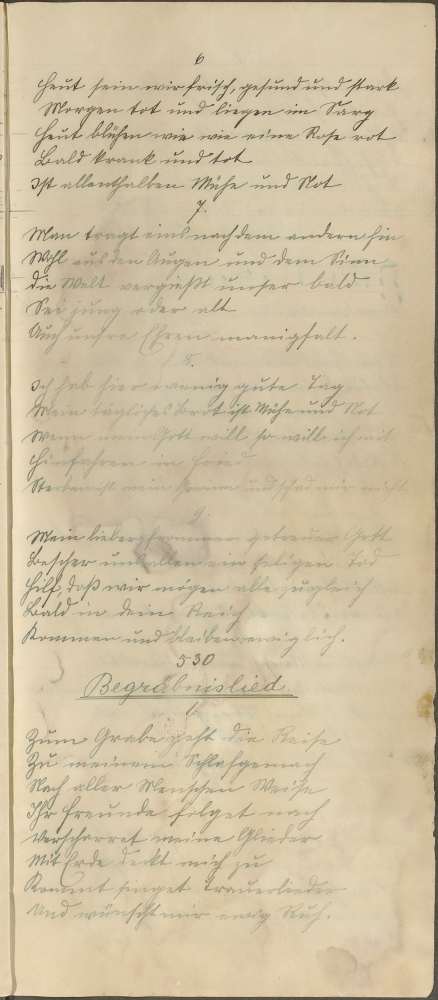 6
Heut sein wir frisch, gesund und stark
Morgen tot und liegen im Sarg
Heut blühen wir wie eine Rose rot
Bald krank und tot
Ist allenthalben Mühe und Not
7.
Man tragt eins nach dem andern hin
Wohl aus den Augen und dem Sinn
Die Welt vergießt unser bald
Sei jung oder alt
Auch unsre Ehren manigfalt.
8.
Ich hab hier wenig gute Tag
Mein tägliches Brot ist Mühe und Not
Wenn mein Gott will so will ich mit
Hinfahren in Fried
Sterben ist mein Gewinn und schad mir nicht
9.
Mein lieber frommer getreuer Gott
Bescher uns allen ein seligen Tod
Hilf, daß wir mögen alle zugleich
Bald in dein Reich
Kommen und bleiben ewiglich.
530
Begräbnislied
1.
Zum Grabe geht die Reise
Zu meinem Schlafgemach
Nach aller Menschen Weise
Ihr Freunde folget nach
Verscharret meine Glieder
Mit Erde deckt mich zu
Kommt singet Trauerlieder
Und wünscht mir ewig Ruh.